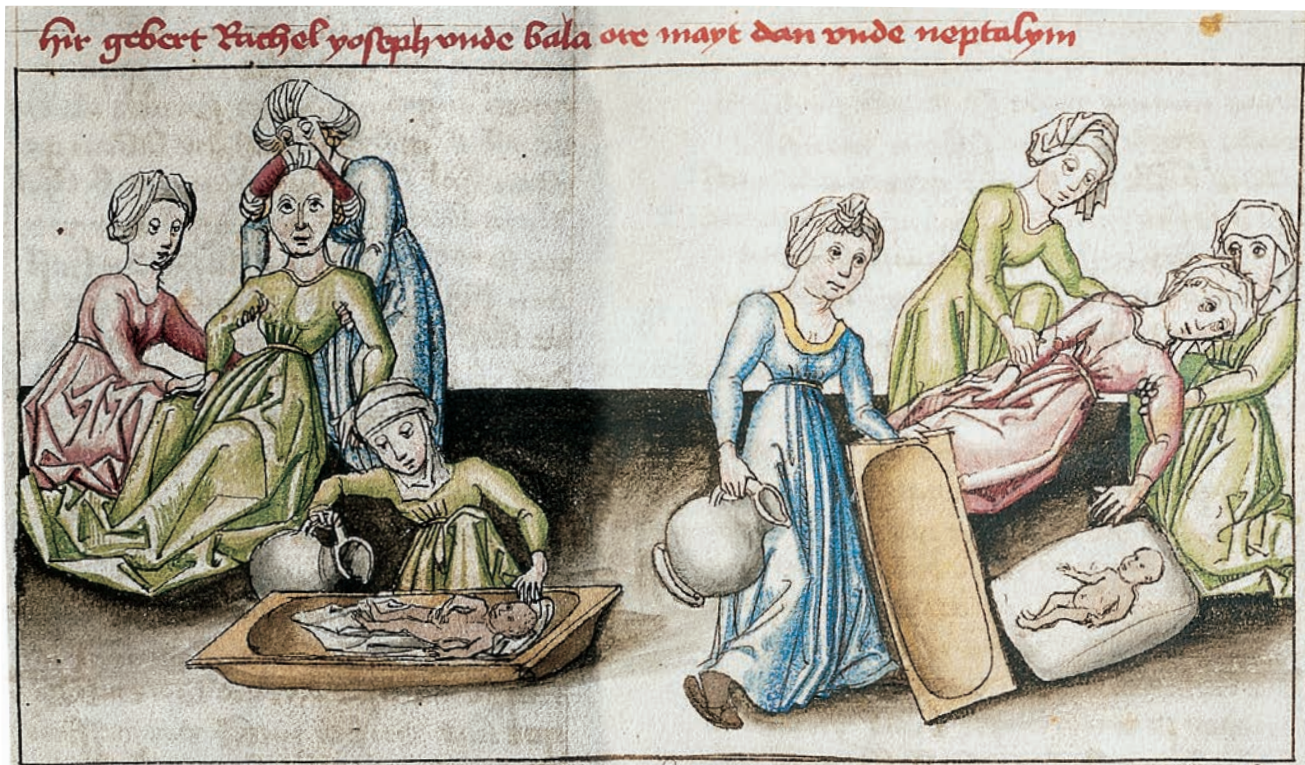 hir gebert Rachel yoseph vnde bala ore mayt dan vnde neptalym